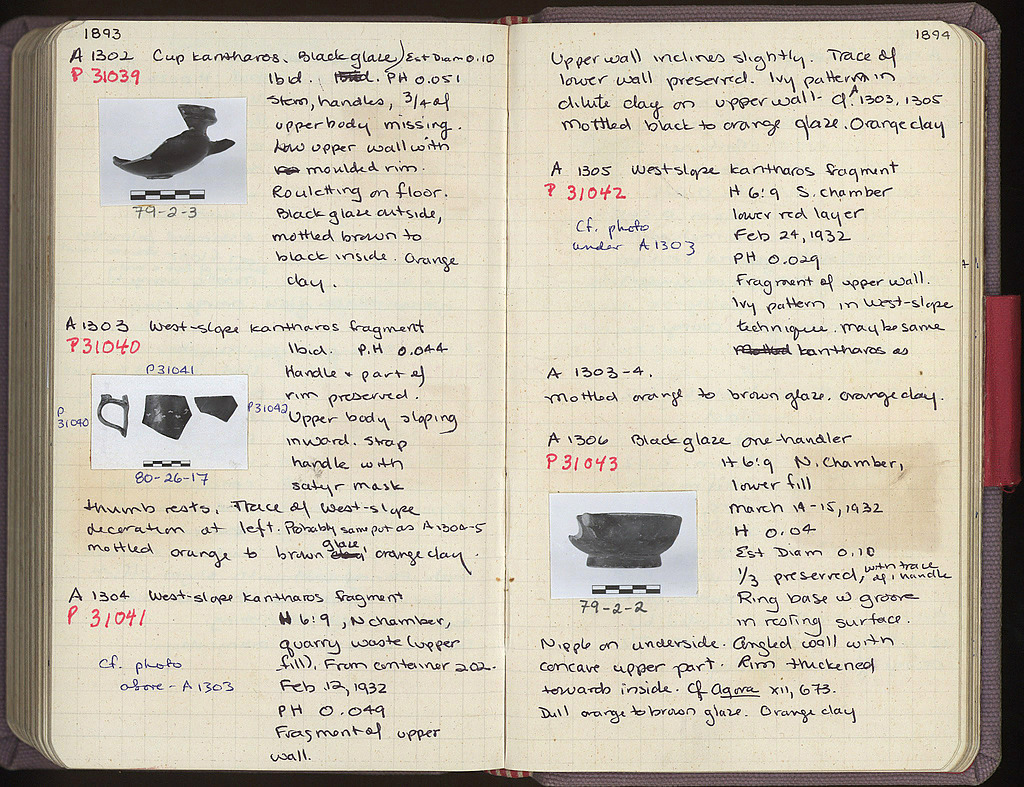 1893
A 1302 Cup kantharos. Black glaze) Est Diam 0.10
P 31039
Ibid. PH 0.051
Stem, handles, 3/4 of
upper body missing.
Low upper wall with
moulded rim.
Rouletting on floor.
Black glaze outside,
mottled brown to
black inside. Orange
clay.
79-2-3
A 1303 West-slope kantharos fragment
P31040
Ibid. P.H 0.044
P31041
P 31040
P31042
80-26-17
Handle + part of
rim preserved.
Upper body sloping
inward. Strap
handle with
satyr mask
thumb rests. Trace of West-slope
decoration at left. Probably same pot as A 1304-5
mottled orange to brown glaze, orange clay.
A 1304 West-slope kantharos fragment
P 31041
H 6:9, N chamber,
quarry waste (upper
fill). From container 202.
Feb 12, 1932
PH 0.049
Fragment of upper
wall.
Cf. photo
above - A 1303
1894
Upper wall inclines slightly. Trace of
lower wall preserved. Ivy pattern in
dilute clay on upper wall. Cf. A 1303, 1305
Mottled black to orange glaze. Orange clay
A 1305 West slope kantharos fragment
P 31042
H 6:9 S. chamber
lower red layer
Feb 24, 1932
PH 0.029
Cf. photo
under A 1303
Fragment of upper wall.
Ivy pattern in West-slope
technique. May be same
kantharos as
A 1303-4.
Mottled orange to brown glaze. Orange clay.
A 1306 Black glaze one-handler
P31043
H 6:9 N. Chamber,
lower fill
March 14-15, 1932
H 0.04
Est Diam 0.10
1/3 preserved, with trace of 1 handle
Ring base w groove
in resting surface.
79-2-2
Nipple on underside. Angled wall with
concave upper part. Rim thickened
towards inside. Cf Agora XII, 673.
Dull orange to brown glaze. Orange clay